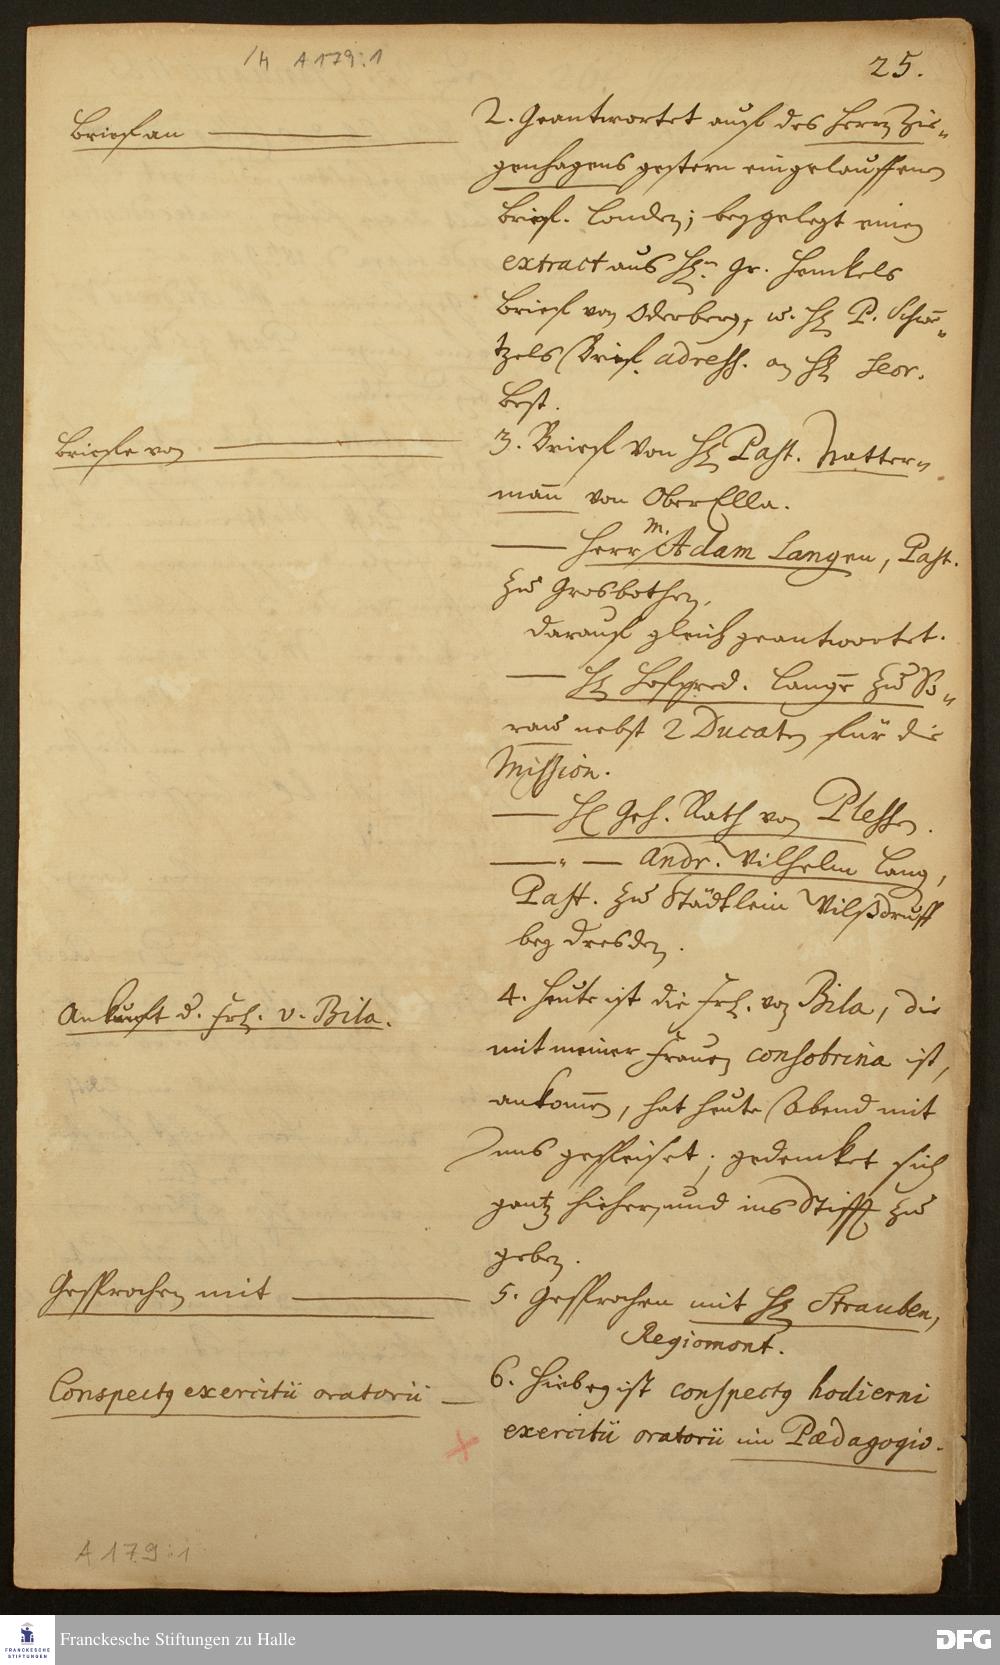 /h A 179:1
25.
Briefe an
2. Geantwortet auf des Herrn Zie-
genhagens gestern eingelauffenen
Brief. Londen; beygelegt einen
extract aus Hn. Gr. Henckels
Brief von Oderberg, u. H. P. Schwe-
tzels Brief. adress. an H.
3. Brief von H. Past. Natter-
mann von OberElla.
Briefe von
— Herr M. Adam Langen, Past.
zu Grosbothen,
darauf gleich geantwortet.
— H. Hofpred. Lange zu So-
rau nebst 2 Ducaten für die
Mission.
— H. Geh. Rath von Plessen.
— " — Andr. Wilhelm Lang,
Past. zu Städtlein Wilßdruff
bey Dresden.
Ankunft d. Frl. v. Bila.
4. Heute ist die Frl. von Bila, die
mit meiner Frauen consobrina ist,
ankomen, hat heute Abend mit
uns gespeiset; gedencket sich
gantz hieher, und ins Stifft zu
geben.
Gesprochen mit
5. Gesprochen mit H. Strauben,
Regiomont.
Conspectus exercitii oratorii
6. Hiebey ist conspectus hodierni
exercitii oratorii im Pædagogio.
A 179:1
FRANCKESCHE
STIFTUNGEN
Franckesche Stiftungen zu Halle
DFG